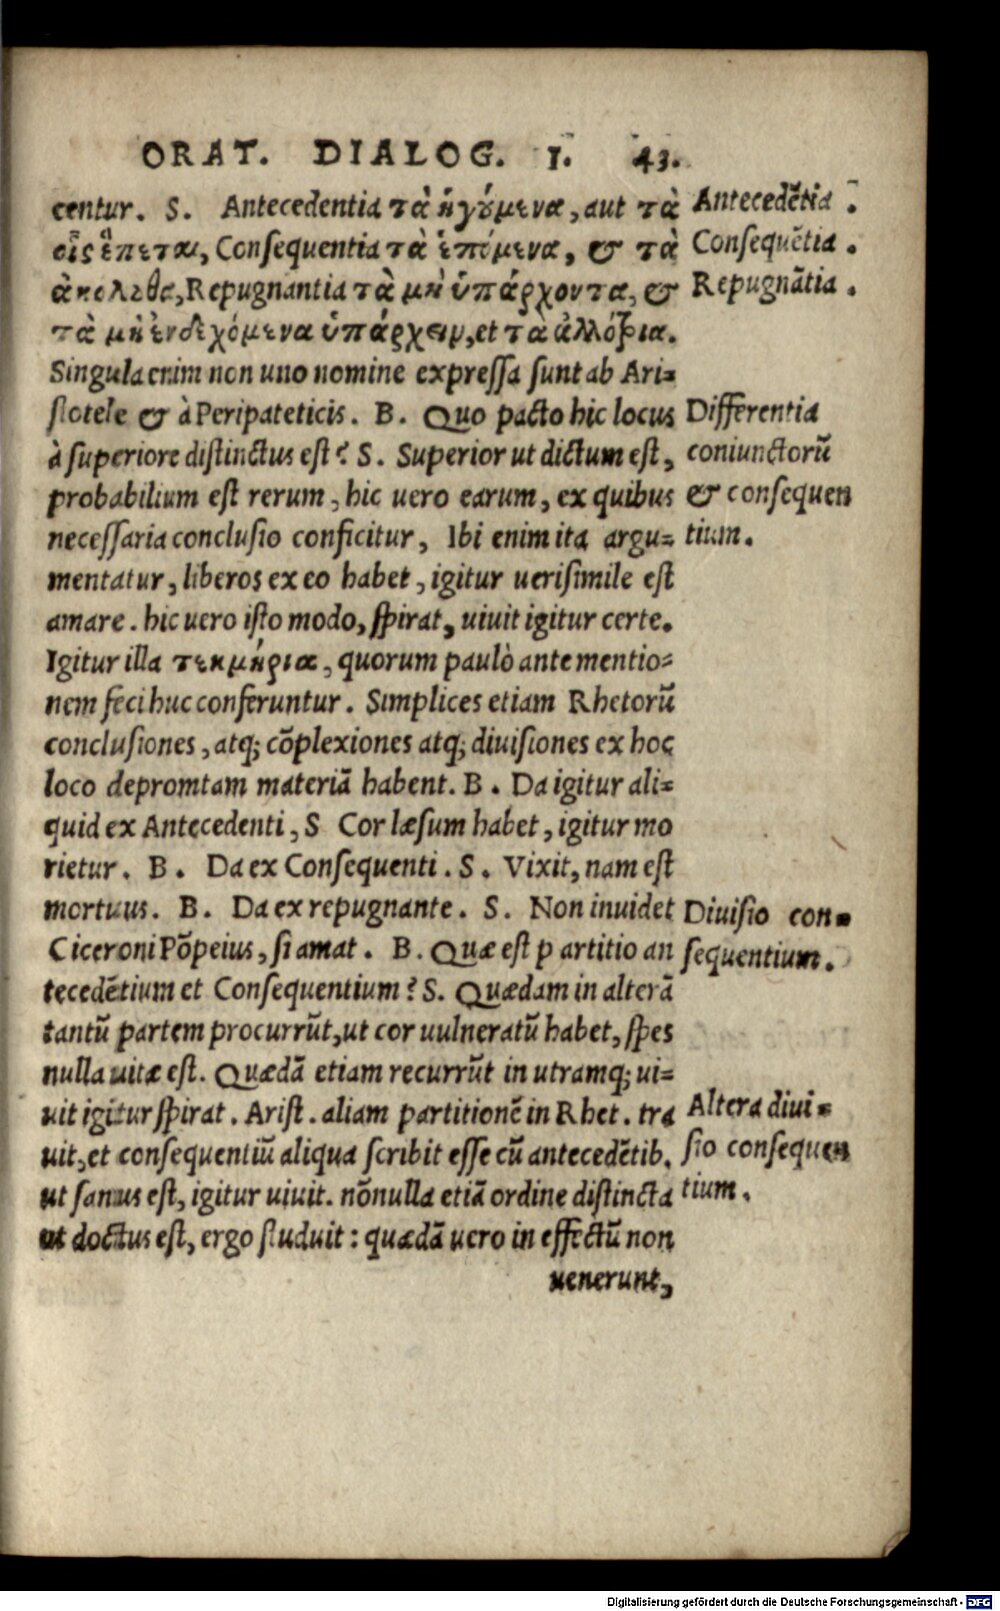 ORAT. DIALOG. I. 43.
centur. S. Antecedentia τὰ ἡγούμενα, aut τὰ
οἷς ἕπεται, Consequentia τὰ ἑπόμενα, & τὰ
ἀκόλουθα, Repugnantia τὰ μὴ ὑπάρχοντα, &
τὰ μὴ ἐνδεχόμενα ὑπάρχειν, et τὰ ἀλλότρια.
Singula enim non uno nomine expressa sunt ab Ari=
stotele & à Peripateticis. B. Quo pacto hic locus
à superiore distinctus est? S. Superior ut dictum est,
probabilium est rerum, hic uero earum, ex quibus
necessaria conclusio conficitur, Ibi enim ita argu=
mentatur, liberos ex eo habet, igitur uerisimile est
amare. hic uero isto modo, spirat, uiuit igitur certe.
Igitur illa τεκμήρια, quorum paulò ante mentio=
nem feci huc conferuntur. Simplices etiam Rhetorū
conclusiones, atq; cōplexiones atq; diuisiones ex hoc
loco depromtam materiā habent. B. Da igitur ali=
quid ex Antecedenti, S Cor læsum habet, igitur mo
rietur. B. Da ex Consequenti. S. Vixit, nam est
mortuus. B. Da ex repugnante. S. Non inuidet
Ciceroni Pōpeius, si amat. B. Quæ est partitio an
tecedētium et Consequentium? S. Quædam in alterā
tantū partem procurrūt, ut cor uulneratū habet, spes
nulla uitæ est. Quædā etiam recurrūt in utramq; ui=
uit igitur spirat. Arist. aliam partitionē in Rhet. tra
uit, et consequentiū aliqua scribit esse cū antecedētib.
ut sanus est, igitur uiuit. nōnulla etiā ordine distincta
ut doctus est, ergo studuit: quædā uero in effectū non
uenerunt,
Antecedētia.
Consequētia.
Repugnātia.
Differentia
coniunctorū
& consequen
tium.
Diuisio con=
sequentium.
Altera diui=
sio consequen
tium.
Digitalisierung gefördert durch die Deutsche Forschungsgemeinschaft - DFG